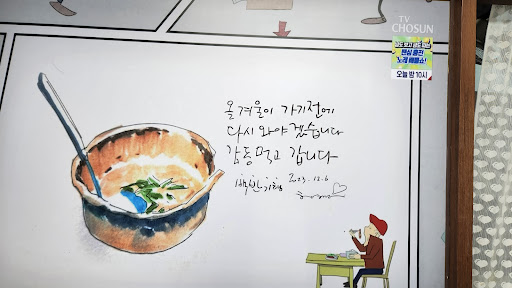 TV
CHOSUN
오늘 밤 10시
올 겨울이 가기전에
다시 와야 겠습니다
감동 먹고 갑니다
2023.12.6